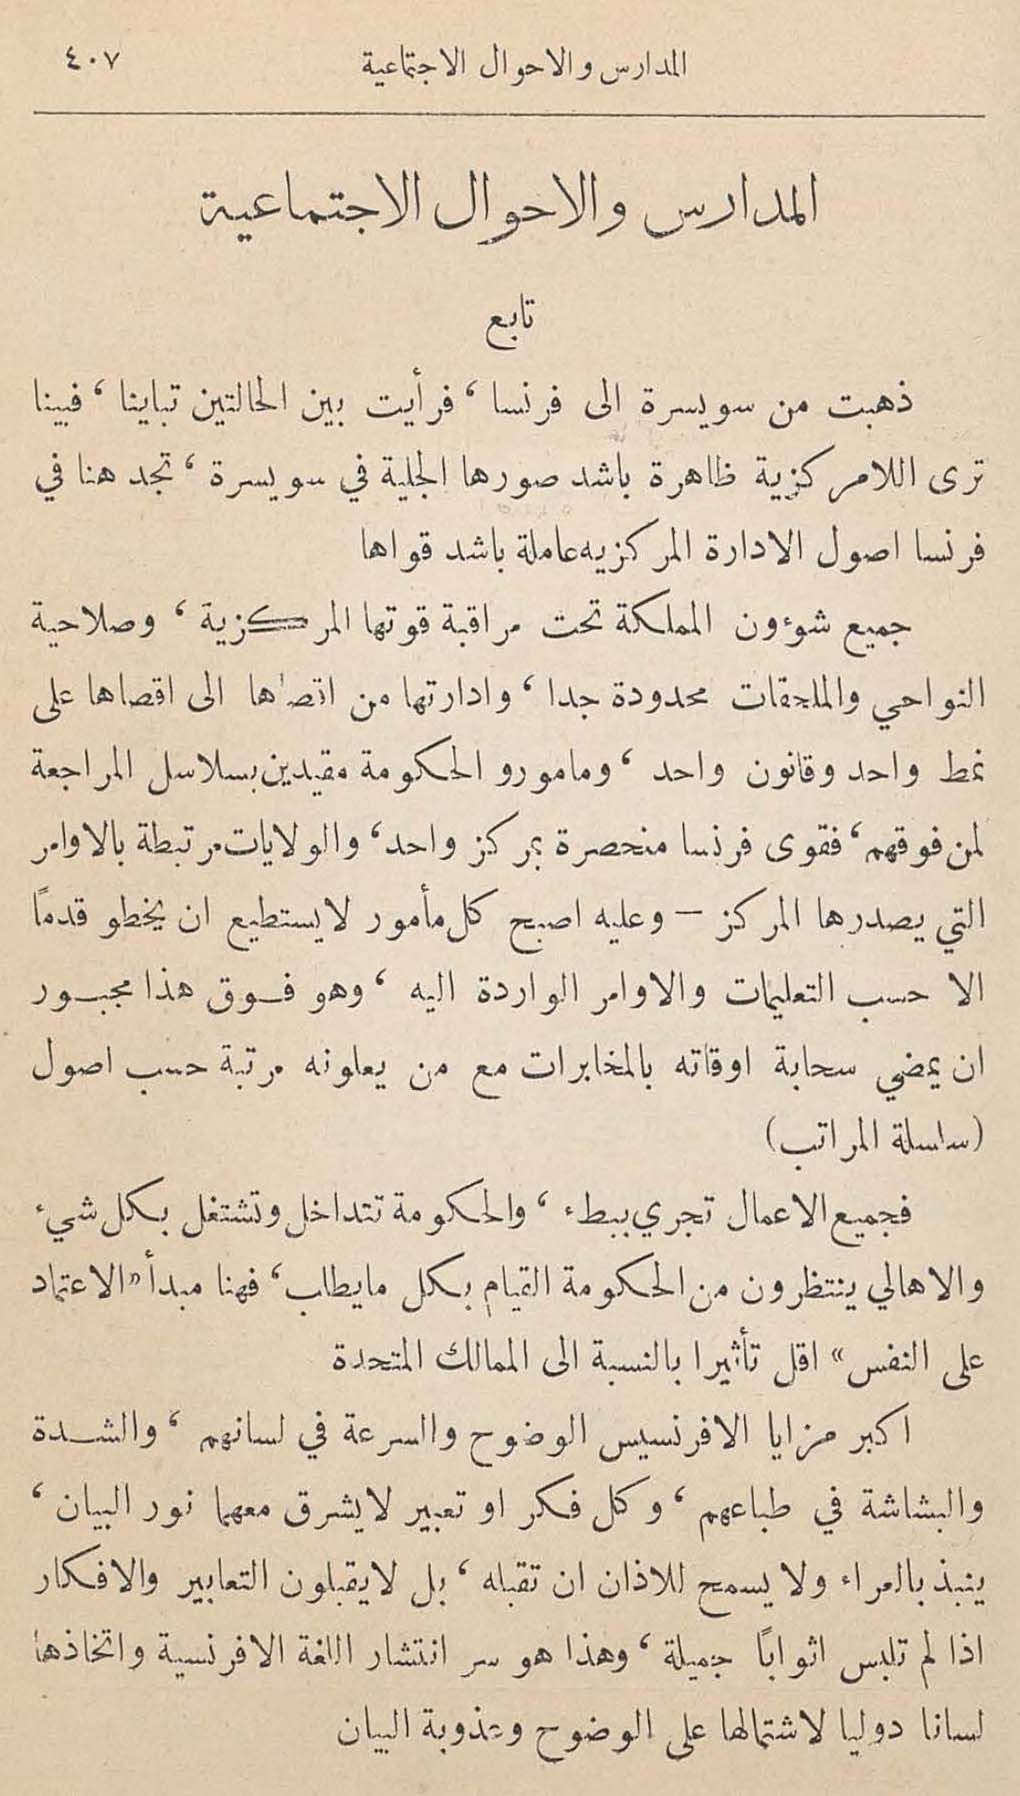 المدارس والاحوال الاجتماعية ٤٠٧
المدارس والاحوال الاجتماعية
تابع
ذهبت من سويسرة الى فرنسا ، فرأيت بين الحالتين تباينا ، فبينا
ترى اللامركزية ظاهرة باشد صورها الجلية في سويسرة ، تجد هنا في
فرنسا اصول الادارة المركزيه عاملة باشد قواها
جميع شوءون المملكة تحت مراقبة قوتها المركزية ، وصلاحية
النواحي والملحقات محدودة جدا ، وادارتها من اقصاها الى اقصاها على
نمط واحد وقانون واحد ، ومامورو الحكومة مقيدين بسلاسل المراجعة
لمن فوقهم ، فقوى فرنسا منحصرة بمركز واحد ، والولايات مرتبطة بالاوامر
التي يصدرها المركز – وعليه اصبح كل مأمور لا يستطيع ان يخطو قدماً
الا حسب التعليمات والاوامر الواردة اليه ، وهو فوق هذا مجبور
ان يمضي سحابة اوقاته بالمخابرات مع من يعلونه مرتبة حسب اصول
(سلسلة المراتب)
فجميع الاعمال تجري ببطء ، والحكومة تتداخل وتشتغل بكل شيء
والاهالي ينتظرون من الحكومة القيام بكل ما يطلب ، فهنا مبدأ «الاعتماد
على النفس» اقل تأثيرا بالنسبة الى الممالك المتحدة
اكبر مزايا الافرنسيس الوضوح والسرعة في لسانهم ، والشدة
والبشاشة في طباعهم ، وكل فكر او تعبير لا يشرق معهما نور البيان ،
ينبذ بالعراء ولا يسمح للاذان ان تقبله ، بل لا يقبلون التعابير والافكار
اذا لم تلبس اثواباً جميلة ، وهذا هو سر انتشار اللغة الافرنسية واتخاذها
لسانا دوليا لاشتمالها على الوضوح وعذوبة البيان